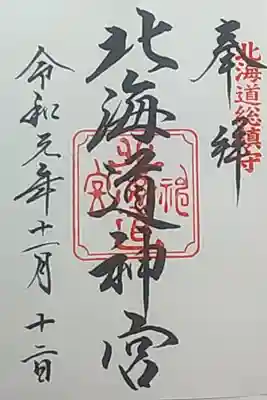 奉拝
北海道総鎮守
北海道神宮
令和元年十一月十二日